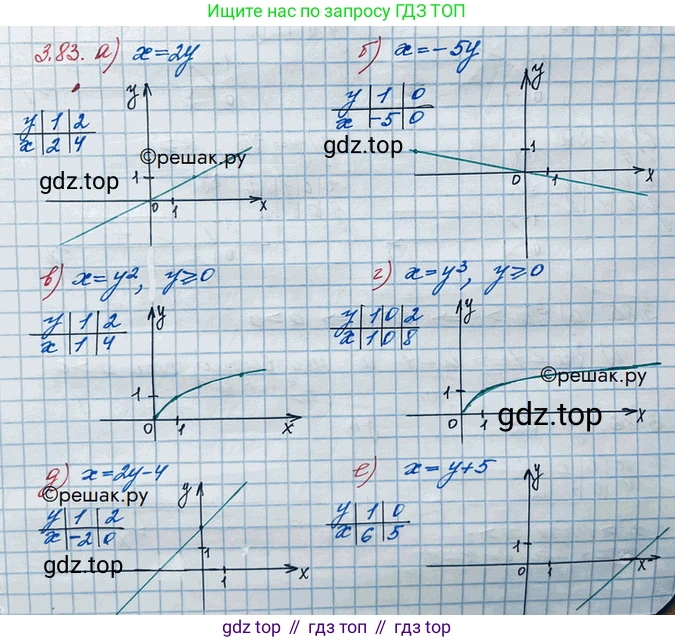 Ищите нас по запросу ГДЗ ТОП
3.83. а) x=2y
y 1 2
x 2 4
y
1
0 1 x
©решак.ру
gdz.top
б) x=-5y
y 1 0
x -5 0
y
1
0 1 x
gdz.top
в) x=y², y≥0
y 1 2
x 1 4
y
1
0 1 x
г) x=y³, y≥0
y 1 0 2
x 1 0 8
y
1
0 1 x
©решак.ру
gdz.top
д) x=2y-4
©решак.ру
y 1 2
x -2 0
gdz.top
y
1
1 x
е) x=y+5
y 1 0
x 6 5
y
1
0 1 x
gdz.top // гдз топ // гдз.топ